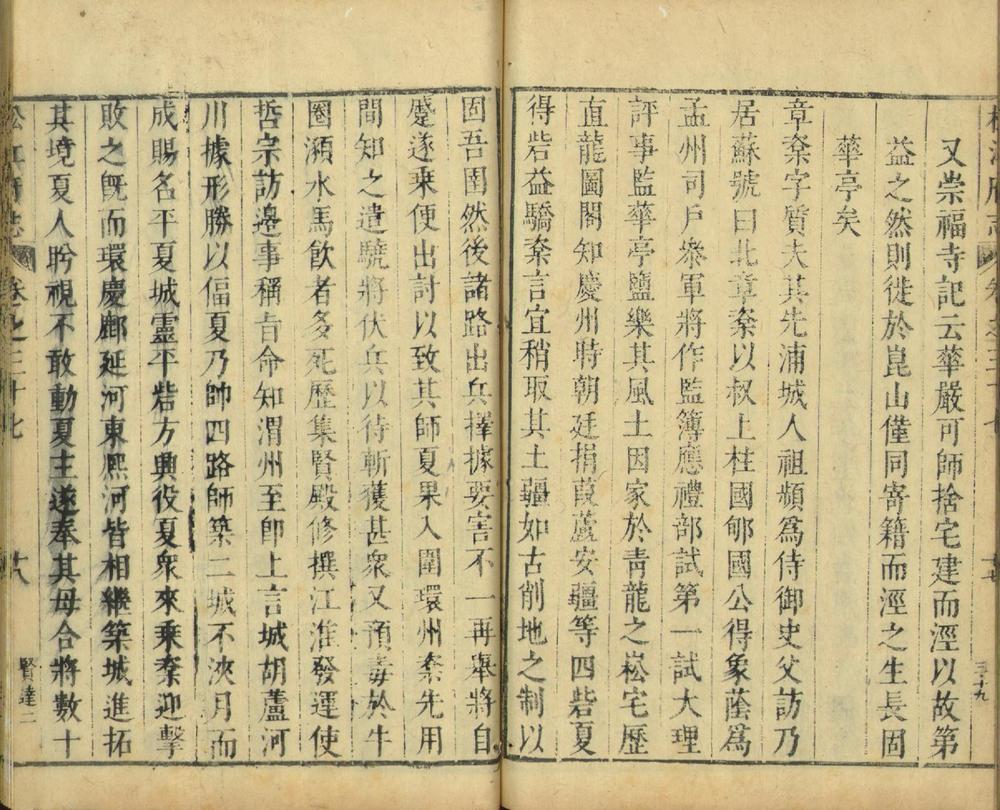 又崇福寺記云華嚴可師捨宅建而涇以故第
益之然則徙於崑山僅同寄籍而涇之生長固
華亭矣
章楶字質夫其先浦城人祖頻爲侍御史父訪乃
居蘇號曰北章楶以叔上柱國郇國公得象蔭爲
孟州司戶叅軍將作監簿應禮部試第一試大理
評事監華亭鹽樂其風土因家於青龍之崧宅歷
直龍圖閣知慶州時朝廷捐葭蘆安疆等四砦夏
得砦益驕楶言宜稍取其土疆如古削地之制以
固吾圉然後諸路出兵擇據要害不一再舉將自
蹙遂乗便出討以致其師夏果入圍環州楶先用
間知之遣驍將伏兵以待斬獲甚衆又預毒於牛
圈瀕水馬飲者多死歷集賢殿修撰江淮發運使
哲宗訪邊事稱旨命知渭州至卽上言城胡蘆河
川據形勝以偪夏乃帥四路師築二城不浹月而
成賜名平夏城靈平砦方興役夏衆來乗楶迎擊
敗之旣而環慶鄜延河東熙河皆相繼築城進拓
其境夏人昑視不敢動夏主遂奉其母合將數十
松江府志
卷之三十七
六
賢達二
三十九